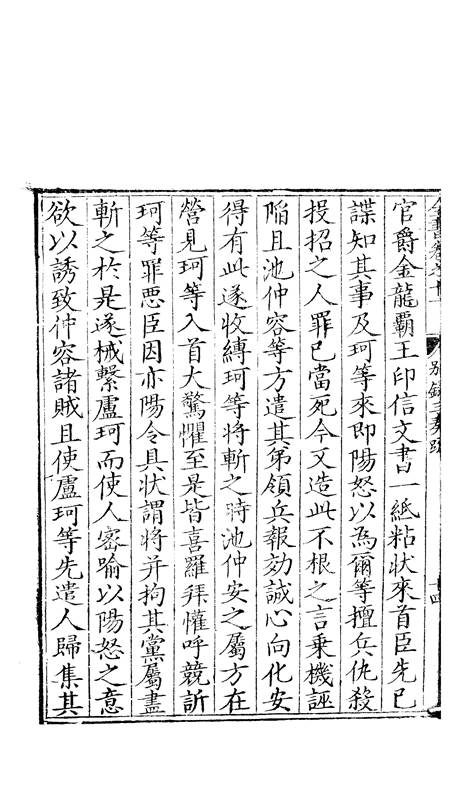 官爵金龍霸王印信文書一紙粘状來首臣先已
諜知其事及珂等來即陽怒以為爾等擅兵仇殺
投招之人罪已當死今又造此不根之言乗機誣
陷且池仲容等方遣其弟領兵報効誠心向化安
得有此遂收縛珂等將斬之時池仲安之屬方在
營見珂等入首大驚懼至是皆喜羅拜懽呼競訢
珂等罪惡臣因亦陽令具状謂將并拘其黨屬盡
斬之於是遂械繫盧珂而使人密喻以陽怒之意
欲以誘致仲容諸賊且使盧珂等先遣人歸集其